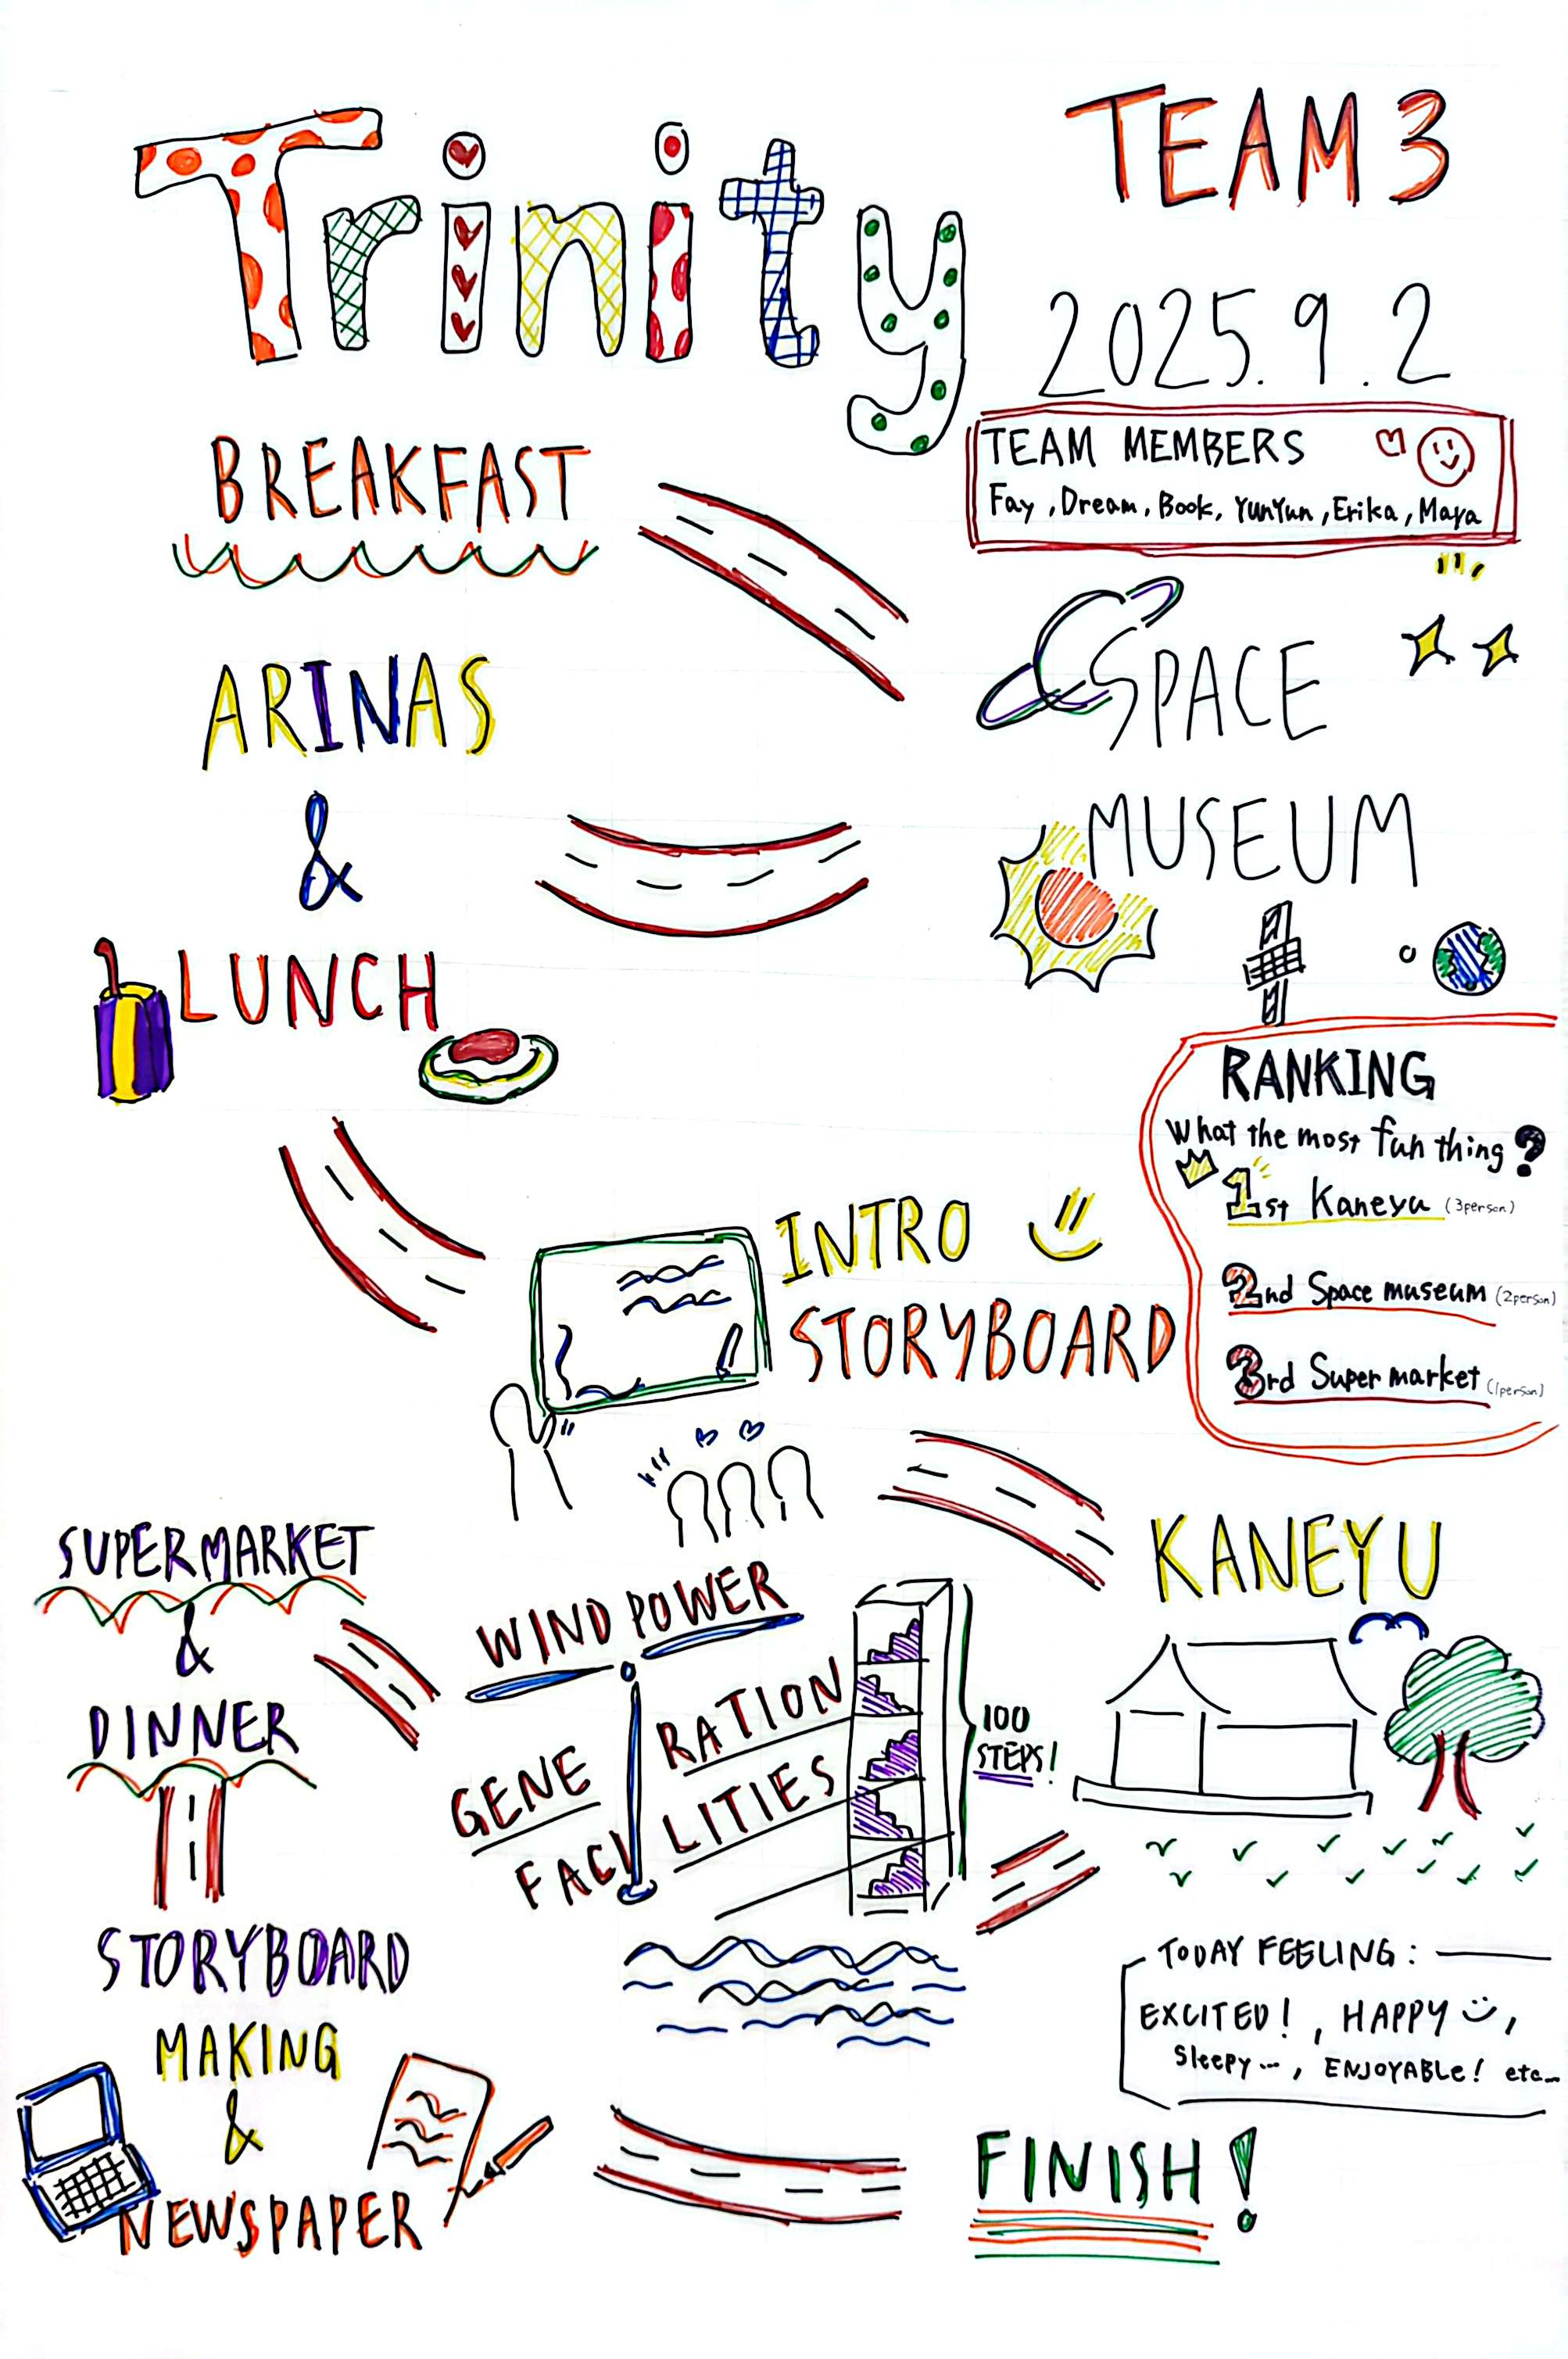 Trinity
TEAM 3
2025.9.2
TEAM MEMBERS
Fay, Dream, Book, YunYun, Erika, Maya
BREAKFAST
SPACE
MUSEUM
ARINAS
&
LUNCH
RANKING
What the most fun thing?
1st Kaneyu (3person)
2nd Space museum (2person)
3rd Super market (1person)
INTRO
STORYBOARD
KANEYU
WIND POWER
GENE RATION
FACI LITIES
100
STEPS!
SUPERMARKET
&
DINNER
STORYBOARD
MAKING
&
NEWSPAPER
TODAY FEELING:
EXCITED!, HAPPY,
Sleepy..., ENJOYABLE! etc...
FINISH!